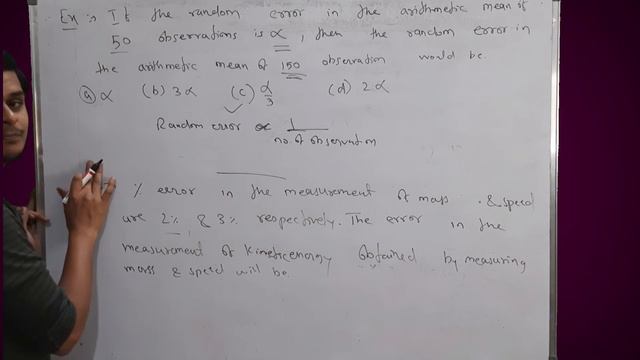 Ex :→ If the random error in the arithmetic mean of
50 observations is α, then the random error in
the arithmetic mean of 150 observation would be
(a) α (b) 3α (c) α/3 (d) 2α
Random error ∝ 1/no. of observation
% error in the measurement of mass & speed
are 2% & 3% respectively. The error in the
measurement of kinetic energy obtained by measuring
mass & speed will be